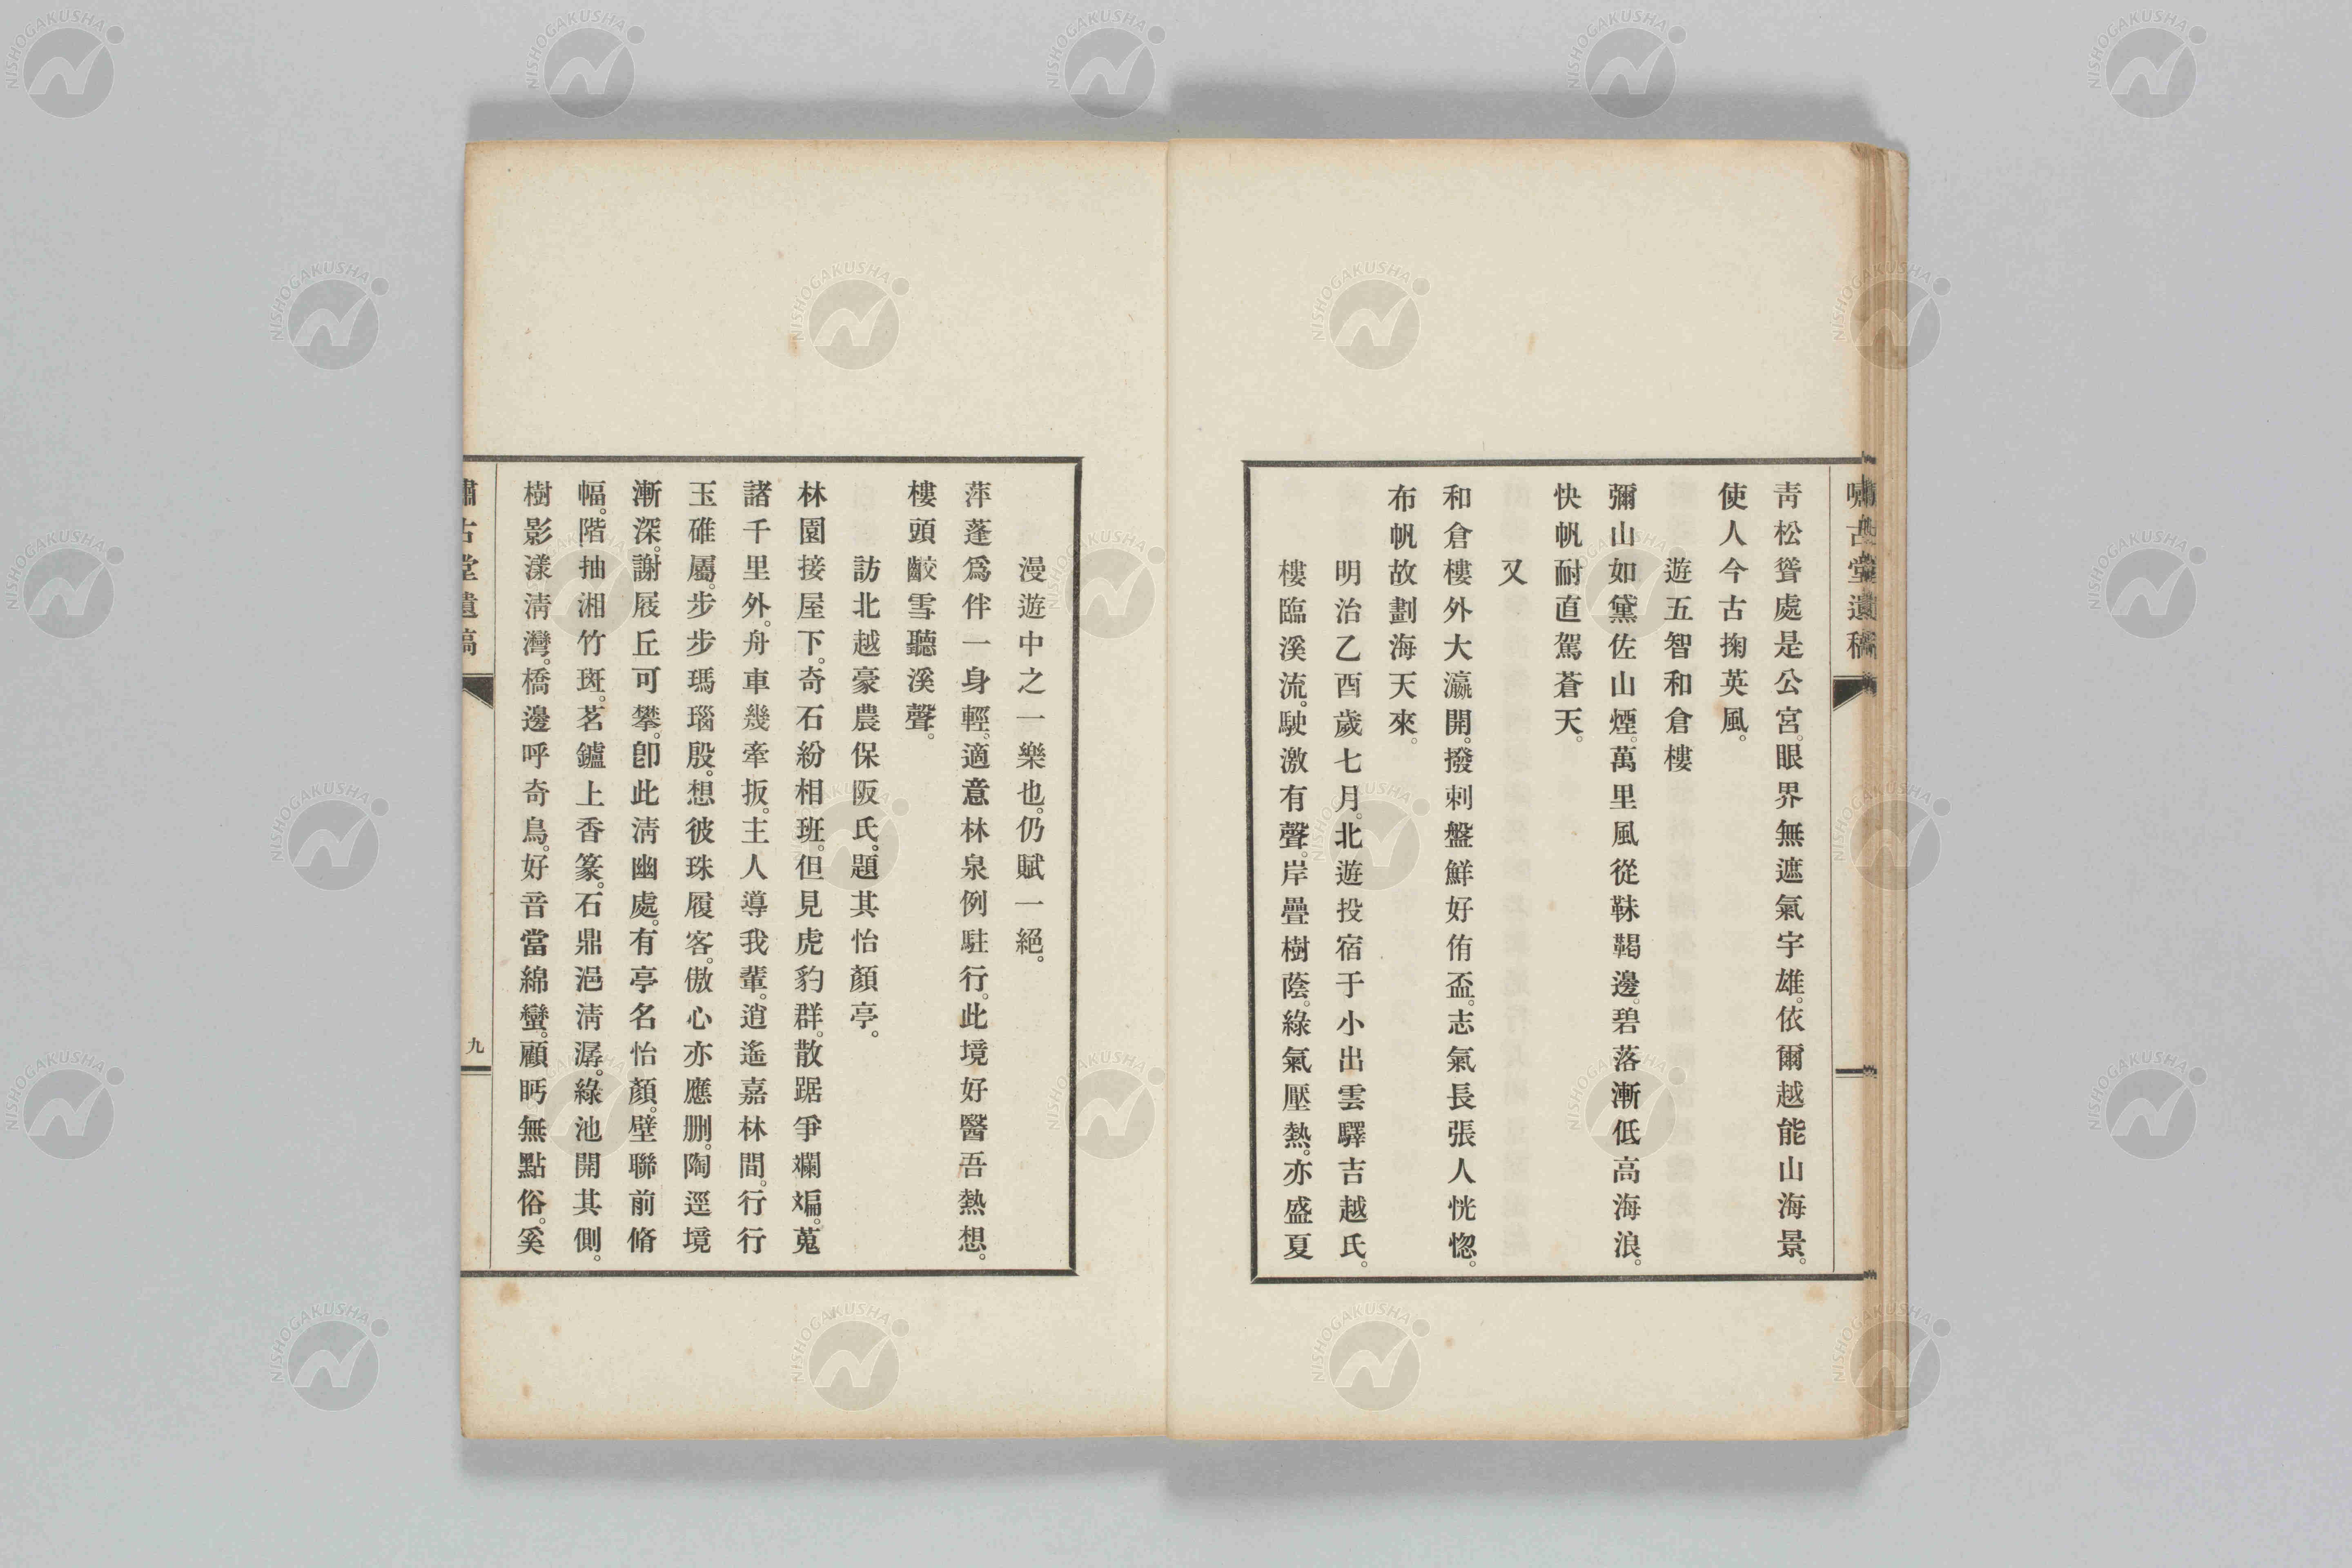 嘯古堂遺稿
靑松聳處是公宮。眼界無遮氣宇雄。依爾越能山海景。
使人今古掬英風。
遊五智和倉樓
彌山如黛佐山煙。萬里風從靺鞨邊。碧落漸低高海浪。
快帆耐直駕蒼天。
又
和倉樓外大瀛開。撥剌盤鮮好侑盃。志氣長張人恍惚。
布帆故劃海天來。
明治乙酉歲七月。北遊投宿于小出雲驛吉越氏。
樓臨溪流。駛激有聲。岸疊樹蔭。綠氣壓熱。亦盛夏
漫遊中之一樂也。仍賦一絕。
萍蓬爲伴一身輕。適意林泉例駐行。此境好醫吾熱想。
樓頭齩雪聽溪聲。
訪北越豪農保阪氏。題其怡顏亭。
林園接屋下。奇石紛相班。但見虎豹群。散踞爭斕斒。蒐
諸千里外。舟車幾牽扳。主人導我輩。逍遙嘉林間。行行
玉碓屬。步步瑪瑙殷。想彼珠履客。傲心亦應刪。陶逕境
漸深。謝屐丘可攀。卽此淸幽處。有亭名怡顏。壁聯前脩
幅。階抽湘竹斑。茗鑪上香篆。石鼎浥淸潺。綠池開其側。
樹影漾淸灣。橋邊呼奇鳥。好音當綿蠻。顧眄無點俗。奚
嘯古堂遺稿
九
NISHOGAKUSHA